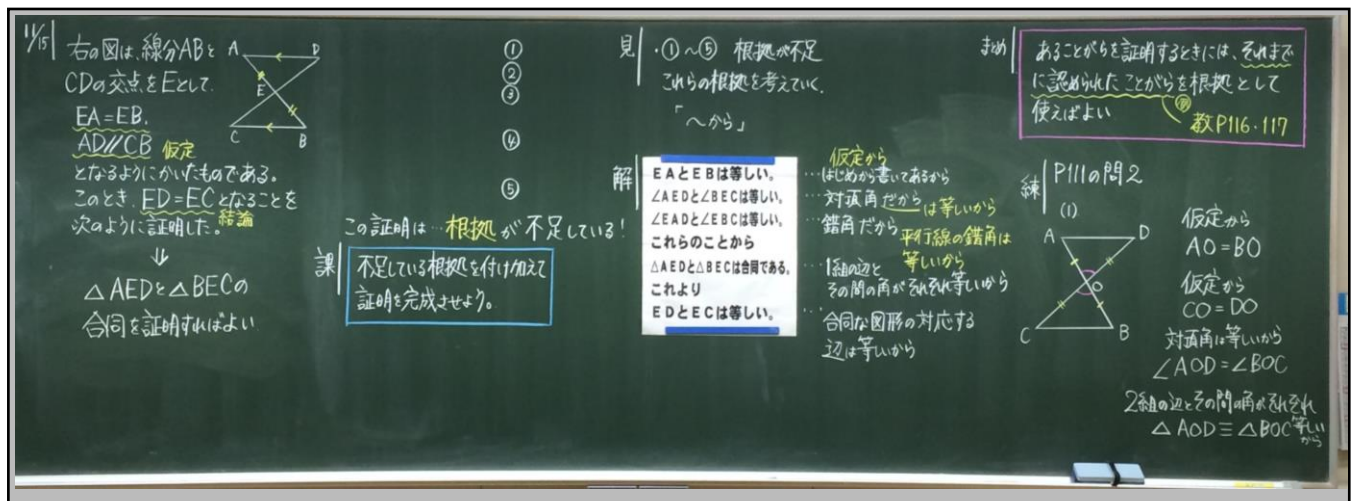 11/15
右の図は、線分ABと
CDの交点をEとして、
EA=EB、
AD//CB 仮定
となるようにかいたものである。
このとき、ED=ECとなることを
次のように証明した。結論
⇓
△AEDと△BECの
合同を証明すればよい
A D
E
C B
①
②
③
④
⑤
この証明は…根拠が不足している!
課
不足している根拠を付け加えて
証明を完成させよう。
見
・①~⑤ 根拠が不足
これらの根拠を考えていく。
「~から」
解
EAとEBは等しい。
∠AEDと∠BECは等しい。
∠EADと∠EBCは等しい。
これらのことから
△AEDと△BECは合同である。
これより
EDとECは等しい。
仮定から
…はじめから書いてあるから
…対頂角だから は等しいから
錯角だから 平行線の錯角は
等しいから
…1組の辺と
その間の角がそれぞれ等しいから
…合同な図形の対応する
辺は等しいから
まとめ
あることがらを証明するときには、それまで
に認められたことがらを根拠として
使えばよい
例
教P116・117
練
P111の問2
(1)
A D
O
C B
仮定から
AO=BO
仮定から
CO=DO
対頂角は等しいから
∠AOD=∠BOC
2組の辺とその間の角がそれぞれ
等しいから
△AOD≡△BOC